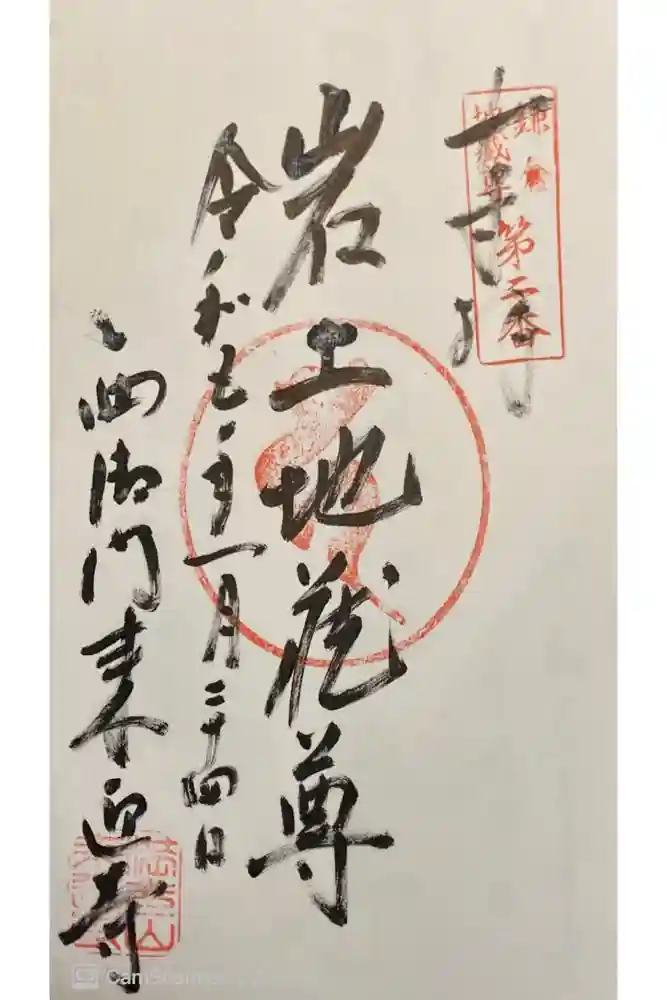 奉拝
鎌倉
地蔵尊
第二番
岩上地蔵尊
令和 年一月二十四日
西御門来迎寺
CamScanner